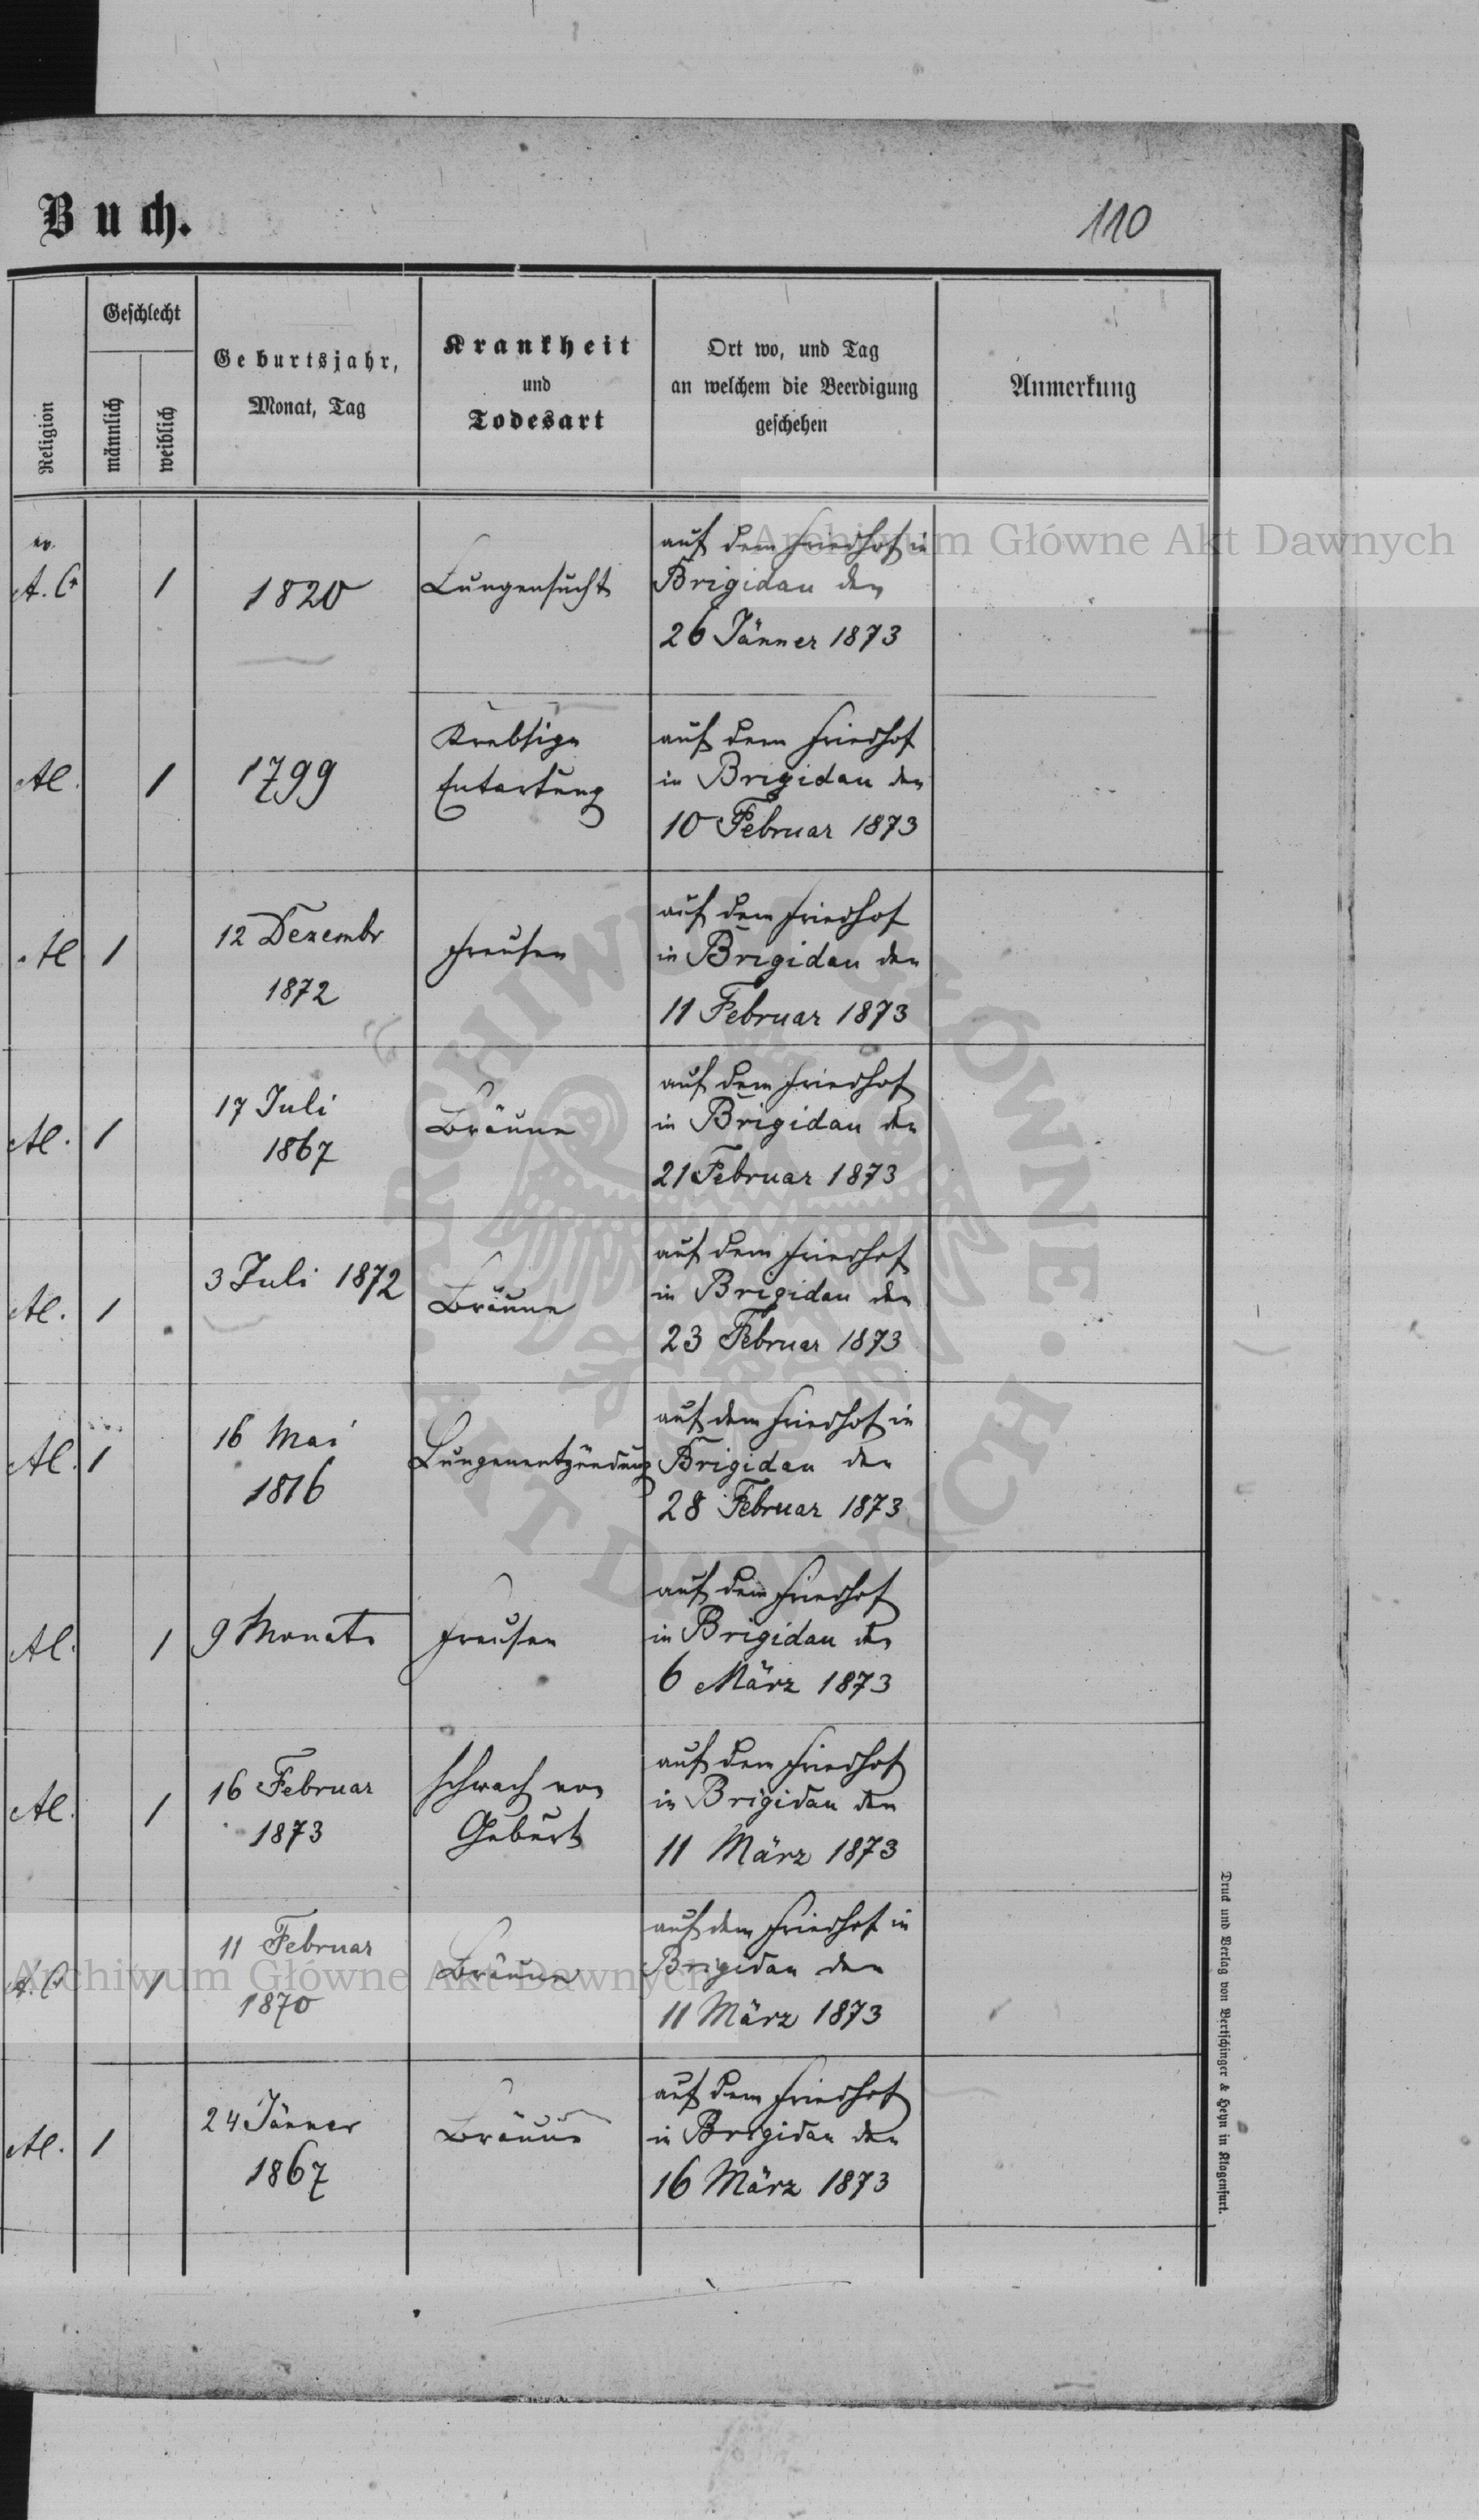 Buch.
110
Religion
Geschlecht
männlich
weiblich
Geburtsjahr,
Monat, Tag
Krankheit
und
Todesart
Ort wo, und Tag
an welchem die Beerdigung
geschehen
Anmerkung
ev.
A. C.
1
1820
Lungensucht
auf dem Friedhof in
Brigidau den
26 Jänner 1873
Al.
1
1799
Krebsige
Entartung
auf dem Friedhof
in Brigidau den
10 Februar 1873
Al
1
12 Dezembr
1872
Freusen
auf dem Friedhof
in Brigidau den
11 Februar 1873
Al.
1
17 Juli
1867
Bräune
auf dem Friedhof
in Brigidau den
21 Februar 1873
Al.
1
3 Juli 1872
Bräune
auf dem Friedhof
in Brigidau den
23 Februar 1873
Al.
1
16 Mai
1816
Lungenentzündung
auf dem Friedhof in
Brigidau den
28 Februar 1873
Al.
1
9 Monate
Freusen
auf dem Friedhof
in Brigidau den
6 März 1873
Al.
1
16 Februar
1873
schwach von
Geburt
auf dem Friedhof
in Brigidau den
11 März 1873
A. C.
1
11 Februar
1870
Bräune
auf dem Friedhof in
Brigidau den
11 März 1873
Al.
1
24 Jänner
1867
Bräune
auf dem Friedhof
in Brigidau den
16 März 1873
Druck und Verlag von Bertschinger & Heyn in Klagenfurt.
Archiwum Główne Akt Dawnych
Archiwum Główne Akt Dawnych
ARCHIWUM GŁÓWNE · AKT DAWNYCH ·